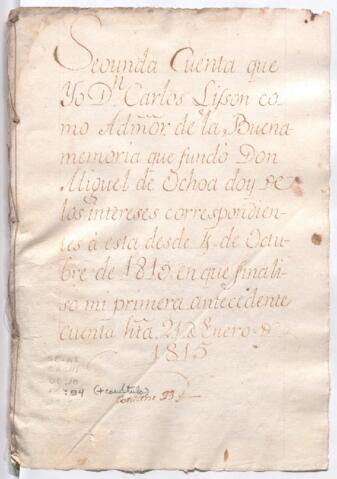 Segunda Cuenta que
Yo Dn Carlos Lisson co-
mo Admõr de la Buena
memoria que fundó Don
Miguel de Ochoa doy de
los intereses correspondien-
tes á esta desde 4 de Octu-
bre de 1810 en que finali-
so mi primera antecedente
cuenta hta 21 de Enero de
1815
(+ carátula)